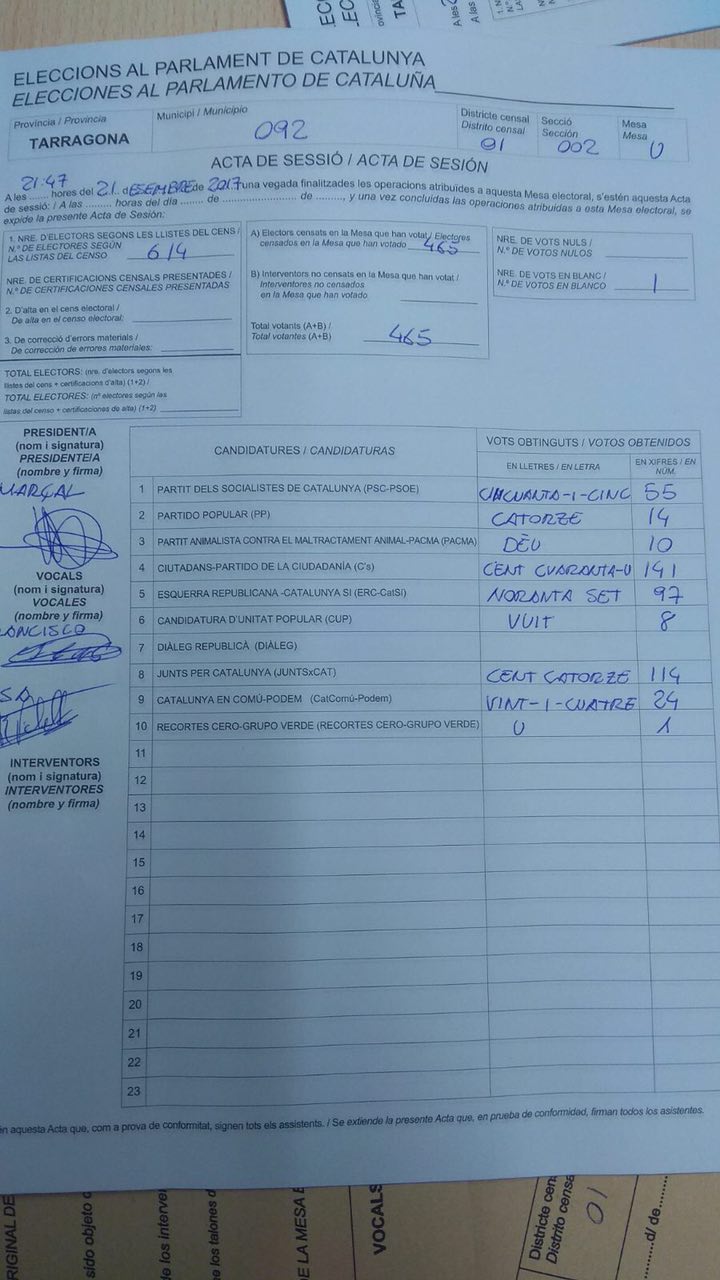 ELECCIONS AL PARLAMENT DE CATALUNYA
ELECCIONES AL PARLAMENTO DE CATALUÑA
Provincia / Provincia
TARRAGONA
Municipi / Municipio
092
Districte censal
Distrito censal
01
Secció
Sección
002
Mesa
Mesa
U
ACTA DE SESSIÓ / ACTA DE SESIÓN
A les 21:47 hores del 21 d ESEMBRE de 2017 una vegada finalitzades les operacions atribuïdes a aquesta Mesa electoral, s'estén aquesta Acta
de sessió: / A las ........ horas del día ....... de ........................... de ........, y una vez concluidas las operaciones atribuidas a esta Mesa electoral, se
expide la presente Acta de Sesión:
1. NRE. D'ELECTORS SEGONS LES LLISTES DEL CENS /
N.º DE ELECTORES SEGÚN
LAS LISTAS DEL CENSO 614
NRE. DE CERTIFICACIONS CENSALS PRESENTADES /
N.º DE CERTIFICACIONES CENSALES PRESENTADAS
2. D'alta en el cens electoral /
De alta en el censo electoral:
3. De correcció d'errors materials /
De corrección de errores materiales:
TOTAL ELECTORS: (nre. d'electors segons les
llistes del cens + certificacions d'alta) (1+2) /
TOTAL ELECTORES: (nº electores según las
listas del censo + certificaciones de alta) (1+2)
A) Electors censats en la Mesa que han votat / Electores
censados en la Mesa que han votado 465
B) Interventors no censats en la Mesa que han votat /
Interventores no censados
en la Mesa que han votado
Total votants (A+B) /
Total votantes (A+B) 465
NRE. DE VOTS NULS /
N.º DE VOTOS NULOS
NRE. DE VOTS EN BLANC /
N.º DE VOTOS EN BLANCO 1
PRESIDENT/A
(nom i signatura)
PRESIDENTE/A
(nombre y firma)
MARÇAL
VOCALS
(nom i signatura)
VOCALES
(nombre y firma)
INTERVENTORS
(nom i signatura)
INTERVENTORES
(nombre y firma)
CANDIDATURES / CANDIDATURAS
VOTS OBTINGUTS / VOTOS OBTENIDOS
EN LLETRES / EN LETRA
EN XIFRES / EN NÚM.
1 PARTIT DELS SOCIALISTES DE CATALUNYA (PSC-PSOE) CINCUANTA-I-CINC 55
2 PARTIDO POPULAR (PP) CATORZE 14
3 PARTIT ANIMALISTA CONTRA EL MALTRACTAMENT ANIMAL-PACMA (PACMA) DÈU 10
4 CIUTADANS-PARTIDO DE LA CIUDADANÍA (C's) CENT CUARANTA-U 141
5 ESQUERRA REPUBLICANA -CATALUNYA SI (ERC-CatSí) NORANTA SET 97
6 CANDIDATURA D'UNITAT POPULAR (CUP) VUIT 8
7 DIÀLEG REPUBLICÀ (DIÀLEG)
8 JUNTS PER CATALUNYA (JUNTSxCAT) CENT CATORZE 114
9 CATALUNYA EN COMÚ-PODEM (CatComú-Podem) VINT-I-CUATRE 24
10 RECORTES CERO-GRUPO VERDE (RECORTES CERO-GRUPO VERDE) U 1
11
12
13
14
15
16
17
18
19
20
21
22
23
én aquesta Acta que, com a prova de conformitat, signen tots els assistents. / Se extiende la presente Acta que, en prueba de conformidad, firman todos los asistentes.
VOCALS
Districte cen
Distrito censa
01
d/ de